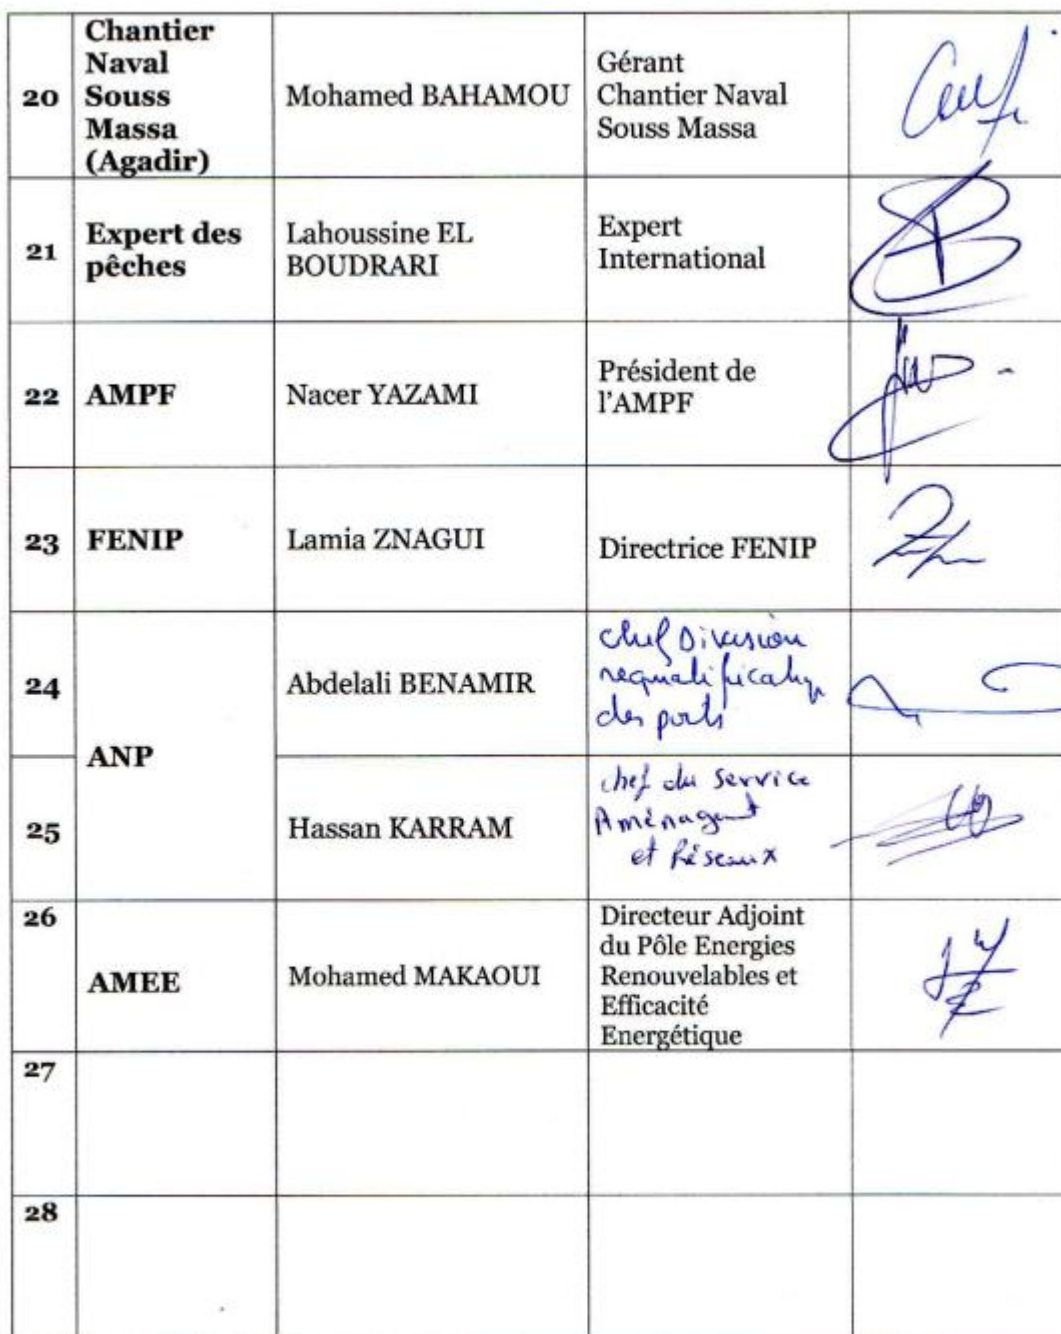 Chantier
Naval
Souss
Massa
(Agadir)
20
Mohamed BAHAMOU
Gérant
Chantier Naval
Souss Massa
21
Expert des
pêches
Lahoussine EL
BOUDRARI
Expert
International
22
AMPF
Nacer YAZAMI
Président de
l'AMPF
23
FENIP
Lamia ZNAGUI
Directrice FENIP
24
ANP
Abdelali BENAMIR
chef Division
requalification
des ports
25
Hassan KARRAM
chef du service
Aménagement
et Réseaux
26
AMEE
Mohamed MAKAOUI
Directeur Adjoint
du Pôle Energies
Renouvelables et
Efficacité
Energétique
27
28